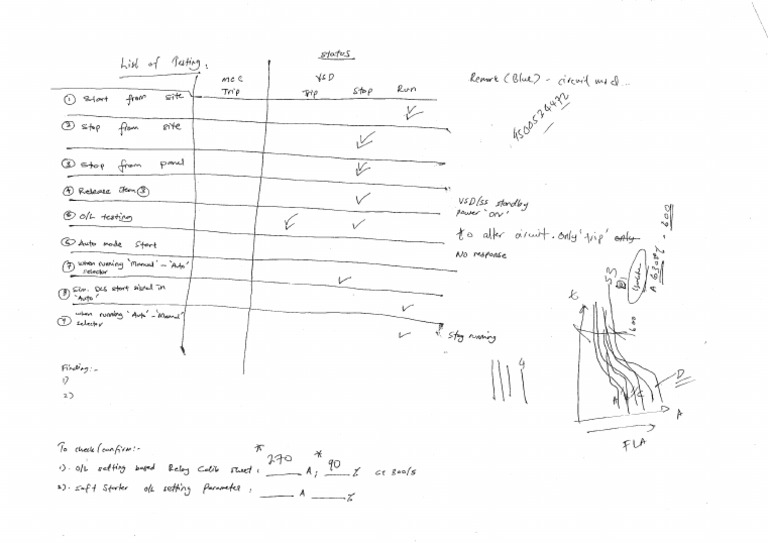 List of Testing:
Status
MCC Trip
VSD
Trip Stop Run
Remark (Blue) - circuit
4500524472
① Start from site
② Stop from site
③ Stop from panel
④ Release item ③
VSD/SS standby
power 'on'
⑤ O/L testing
to alter circuit. Only 'trip' only
⑥ Auto mode start
No response
⑦ when running 'Manual' - 'Auto'
selector
⑧ Sim. DCS start signal in
'Auto'
⑨ when running 'Auto' - 'Manual'
selector
Stay running
Finding:-
1)
2)
4
SS
t
600
A
D
A
FLA
To check/confirm:-
1). O/L setting based Relay Calib sheet: 270 A; 90 % CT 300/5
2). Soft Starter O/L setting parameter: ___ A ___ %